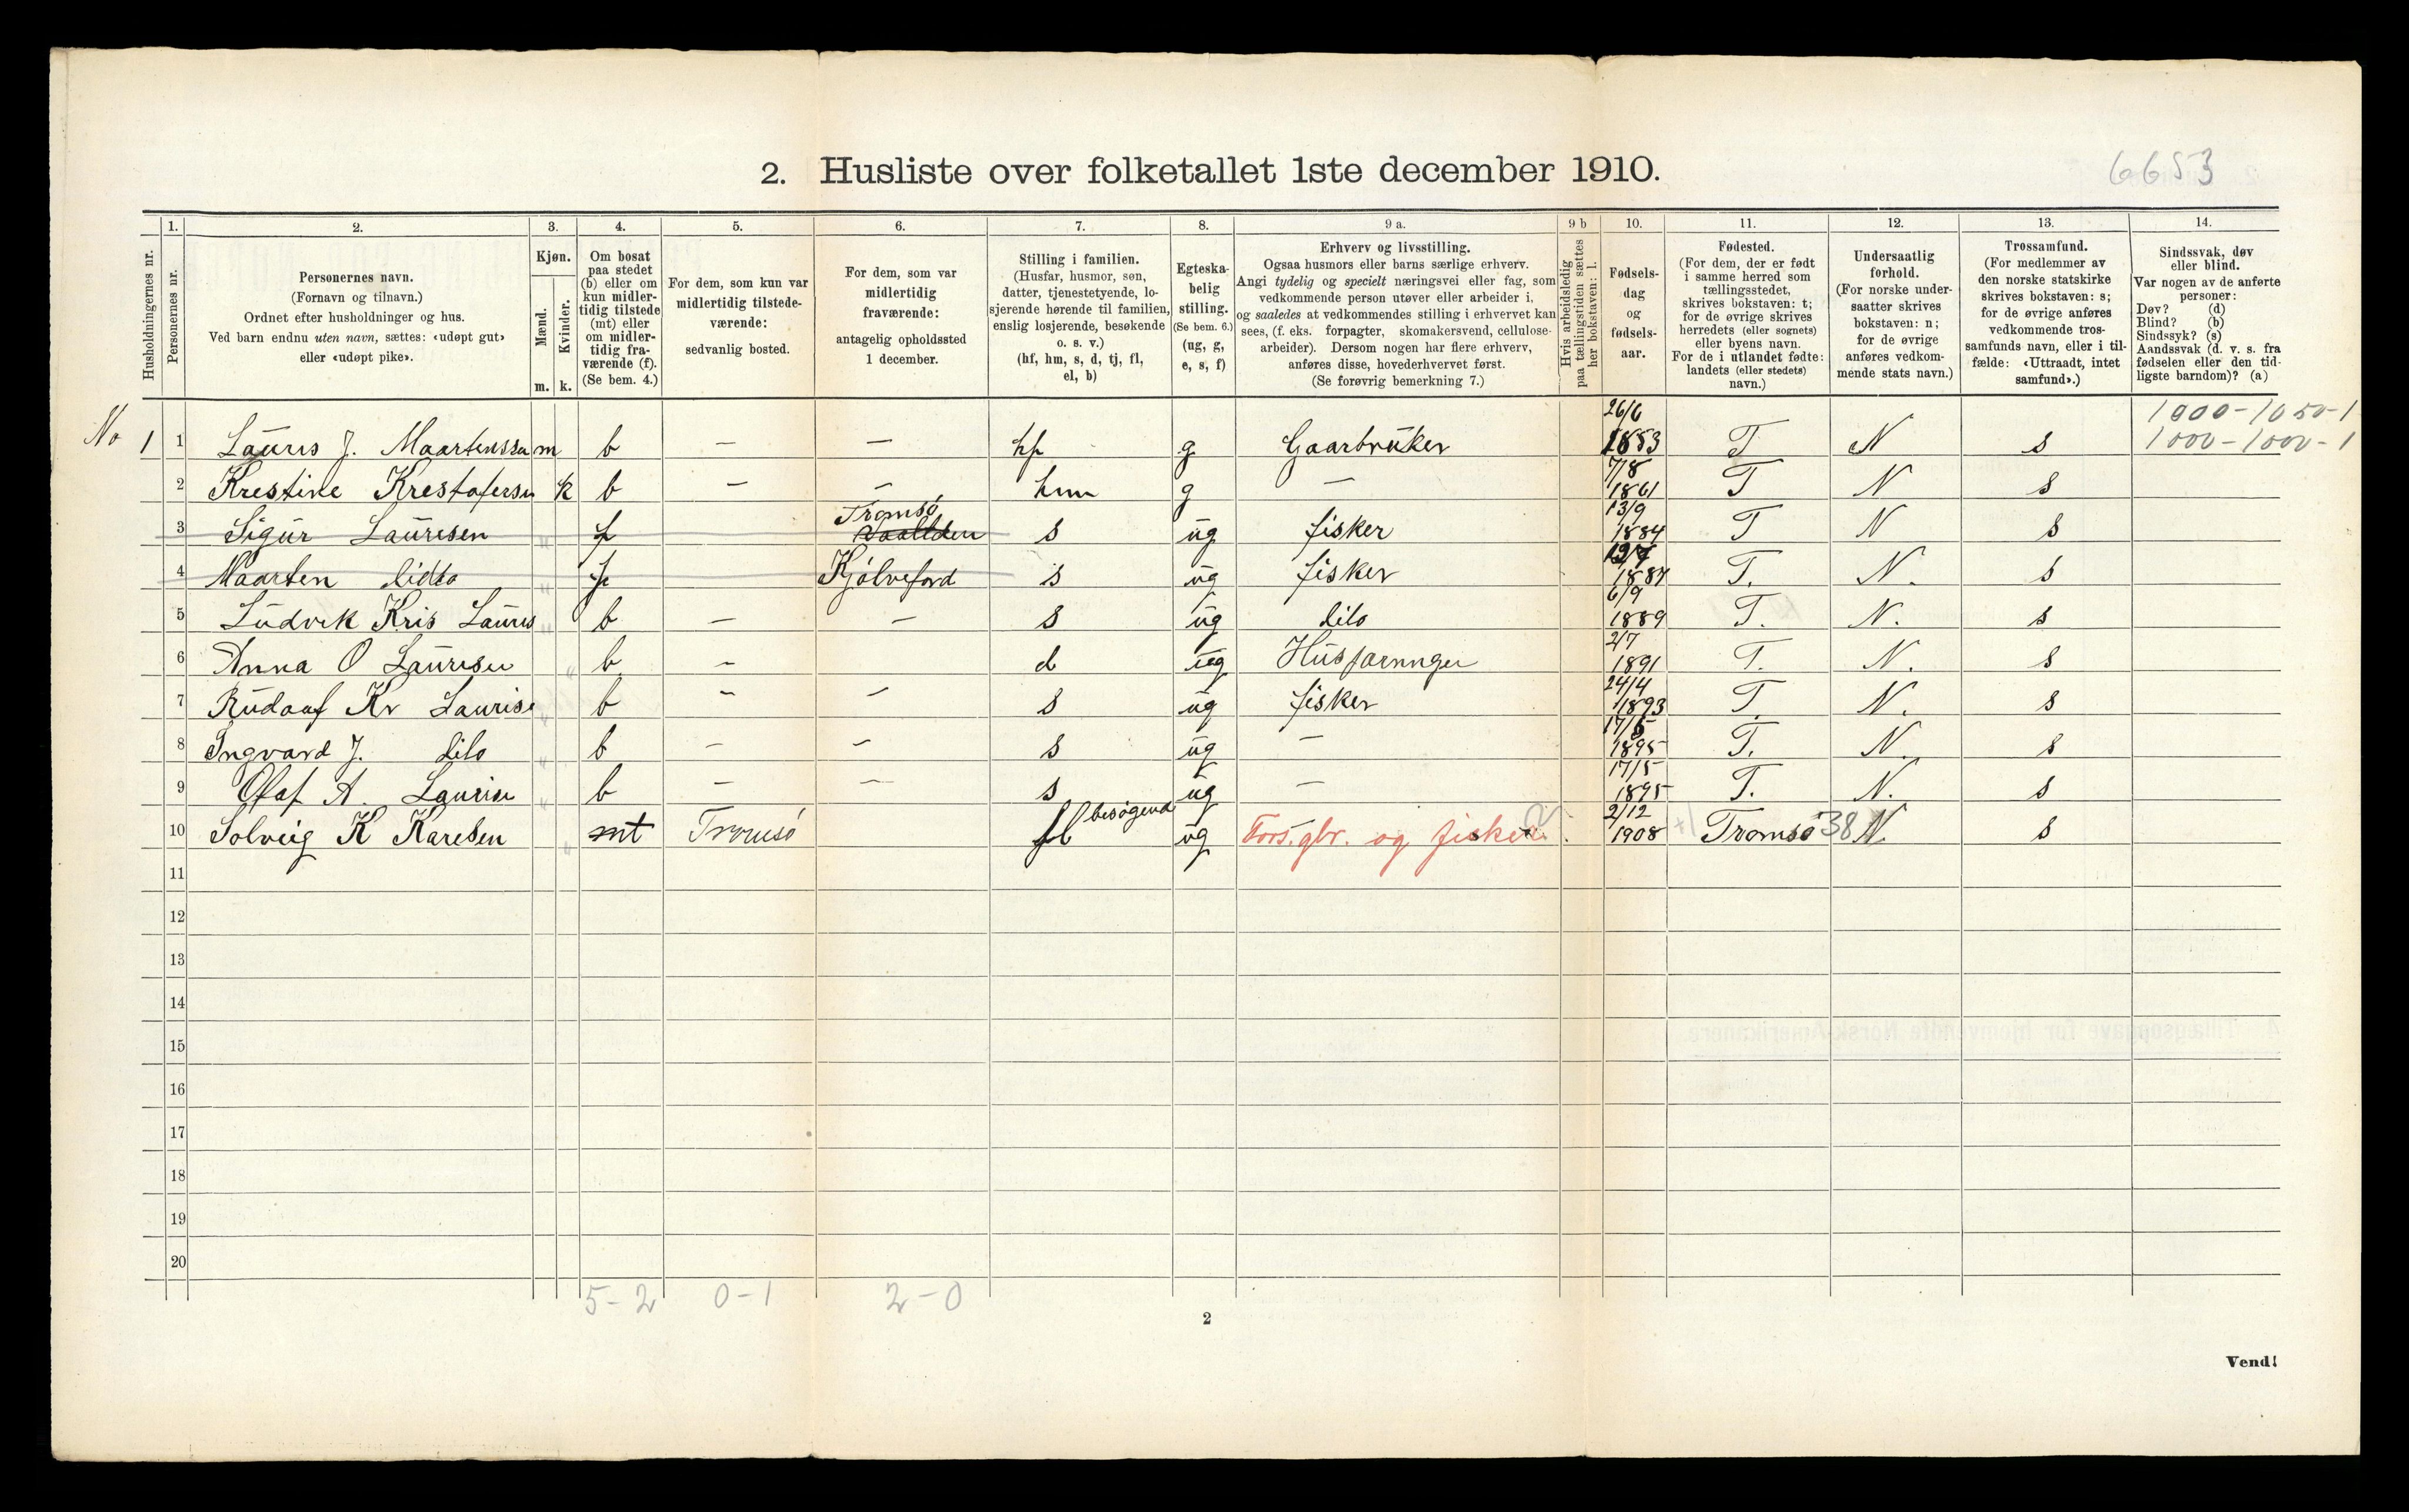 2. Husliste over folketallet 1ste december 1910.
6653
Husholdningernes nr.
1.
Personernes nr.
2.
Personernes navn.
(Fornavn og tilnavn.)
Ordnet efter husholdninger og hus.
Ved barn endnu uten navn, sættes: «udøpt gut»
eller «udøpt pike».
3.
Kjøn.
Mænd.
Kvinder.
m. k.
4.
Om bosat
paa stedet
(b) eller om
kun midler-
tidig tilstede
(mt) eller
om midler-
tidig fra-
værende (f).
(Se bem. 4.)
5.
For dem, som kun var
midlertidig tilstede-
værende:
sedvanlig bosted.
6.
For dem, som var
midlertidig
fraværende:
antagelig opholdssted
1 december.
7.
Stilling i familien.
(Husfar, husmor, søn,
datter, tjenestetyende, lo-
sjerende hørende til familien,
enslig losjerende, besøkende
o. s. v.)
(hf, hm, s, d, tj, fl,
el, b)
8.
Egteska-
belig
stilling.
(Se bem. 6.)
(ug, g,
e, s, f)
9 a.
Erhverv og livsstilling.
Ogsaa husmors eller barns særlige erhverv.
Angi tydelig og specielt næringsvei eller fag, som
vedkommende person utøver eller arbeider i,
og saaledes at vedkommendes stilling i erhvervet kan
sees, (f. eks. forpagter, skomakersvend, cellulose-
arbeider). Dersom nogen har flere erhverv,
anføres disse, hovederhvervet først.
(Se forøvrig bemerkning 7.)
9 b
Hvis arbeidsledig
paa tællingstiden sættes
her bokstaven: l.
10.
Fødsels-
dag
og
fødsels-
aar.
11.
Fødested.
(For dem, der er født
i samme herred som
tællingsstedet,
skrives bokstaven: t;
for de øvrige skrives
herredets (eller sognets)
eller byens navn.
For de i utlandet fødte:
landets (eller stedets)
navn.)
12.
Undersaatlig
forhold.
(For norske under-
saatter skrives
bokstaven: n;
for de øvrige
anføres vedkom-
mende stats navn.)
13.
Trossamfund.
(For medlemmer av
den norske statskirke
skrives bokstaven: s;
for de øvrige anføres
vedkommende tros-
samfunds navn, eller i til-
fælde: «Uttraadt, intet
samfund».)
14.
Sindssvak, døv
eller blind.
Var nogen av de anførte
personer:
Døv? (d)
Blind? (b)
Sindssyk? (s)
Aandssvak (d. v. s. fra
fødselen eller den tid-
ligste barndom)? (a)
1900-1050-1
No 1 1 Lauris J. Maartenssn m b — — hf g Gaarbrüker 26/6 1853 T N s 1000-1000-1
2 Krestine Krestofersn k b — — hm g — 7/8 1861 T N s
3 Sigür Laurisen " f Tromsø s ug fisker 13/9 1884 T N s
4 Maarten dido " f Kjølveford s ug fisker 1887 T. N. s
5 Ludvik Kris Lauris " b — — s ug dito 6/9 1889 T. N. s
6 Anna O Laurisen " b — d ug 2/7 1891 T. N. s
7 Rudoaf Kr Laurise " b — — s ug fisker 24/4 1893 T. N. s
8 Ingvard J. dito " b — — s ug — 17/5 1895 T. N. s
9 Olaf A. Laurisn " b — — s ug — 17/5 1895 T. N. s
10 Solveig K Karelsen " mt Tromsø fl besøgend ug — Fors. gbr. og fisker. 2/12 1908 Tromsø 38 N. s
11
12
13
14
15
16
17
18
19
20
5-2 0-1 2-0
2
Vend!